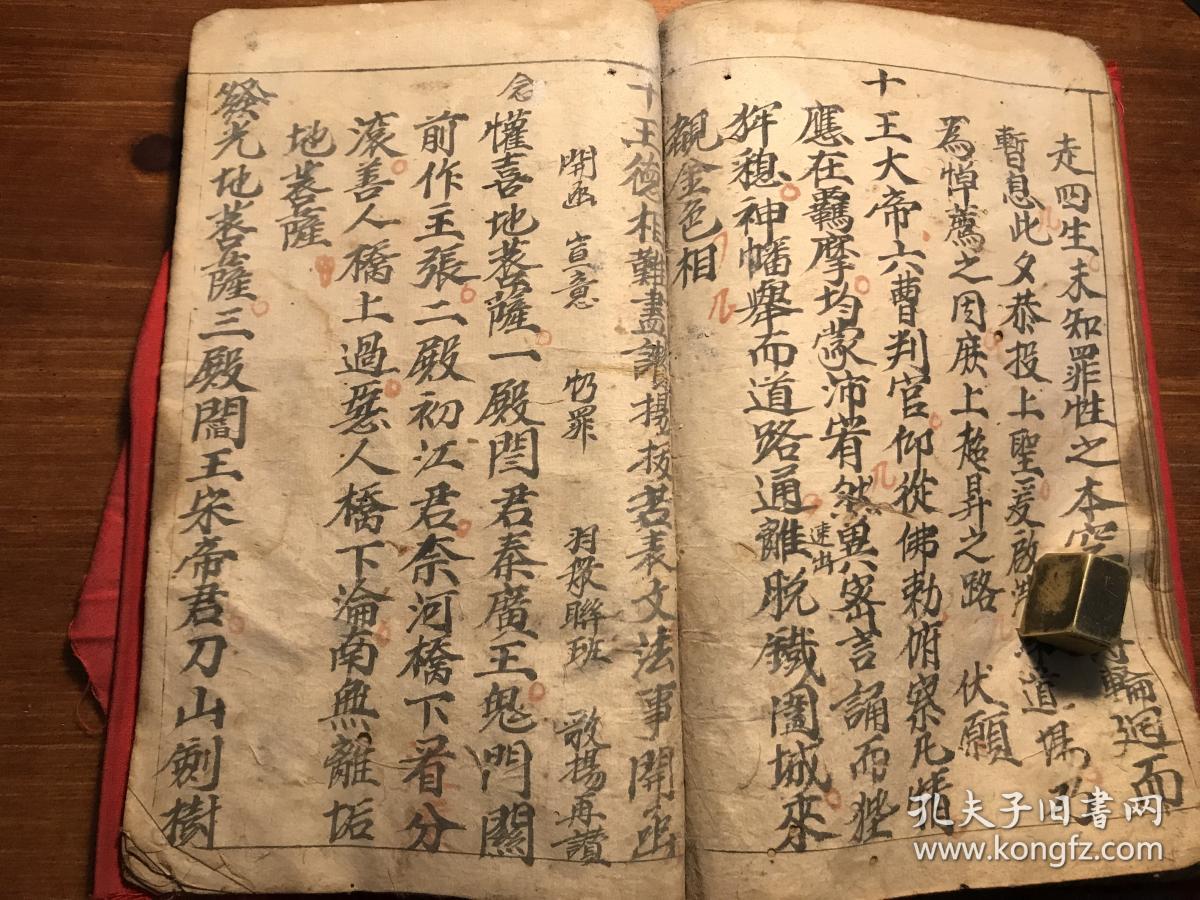 走四生未知罪性之本 輪迴而
暫息此夕恭投上聖爰啟 道場
為悼薦之因庶上超昇之路 伏願
十王大帝六曹判官仰從佛勅俯察凡情
應在羈摩均蒙沛宥然異密言誦而狴
速出
犴穏神幡舉而道路通離脱鐵圍城來
覩金色相
十王德相難盡讚揚 表文法事開函
開函 宣意 罪 聯班 敬揚再讚
念
懽喜地菩薩一殿閆君秦廣王鬼門關
前作主張二殿初江君奈河橋下看分
滚善人橋上過惡人橋下淪南無離垢
地菩薩
發光地菩薩三殿閻王宋帝君刀山劍樹
孔夫子旧书网
www.kongfz.com